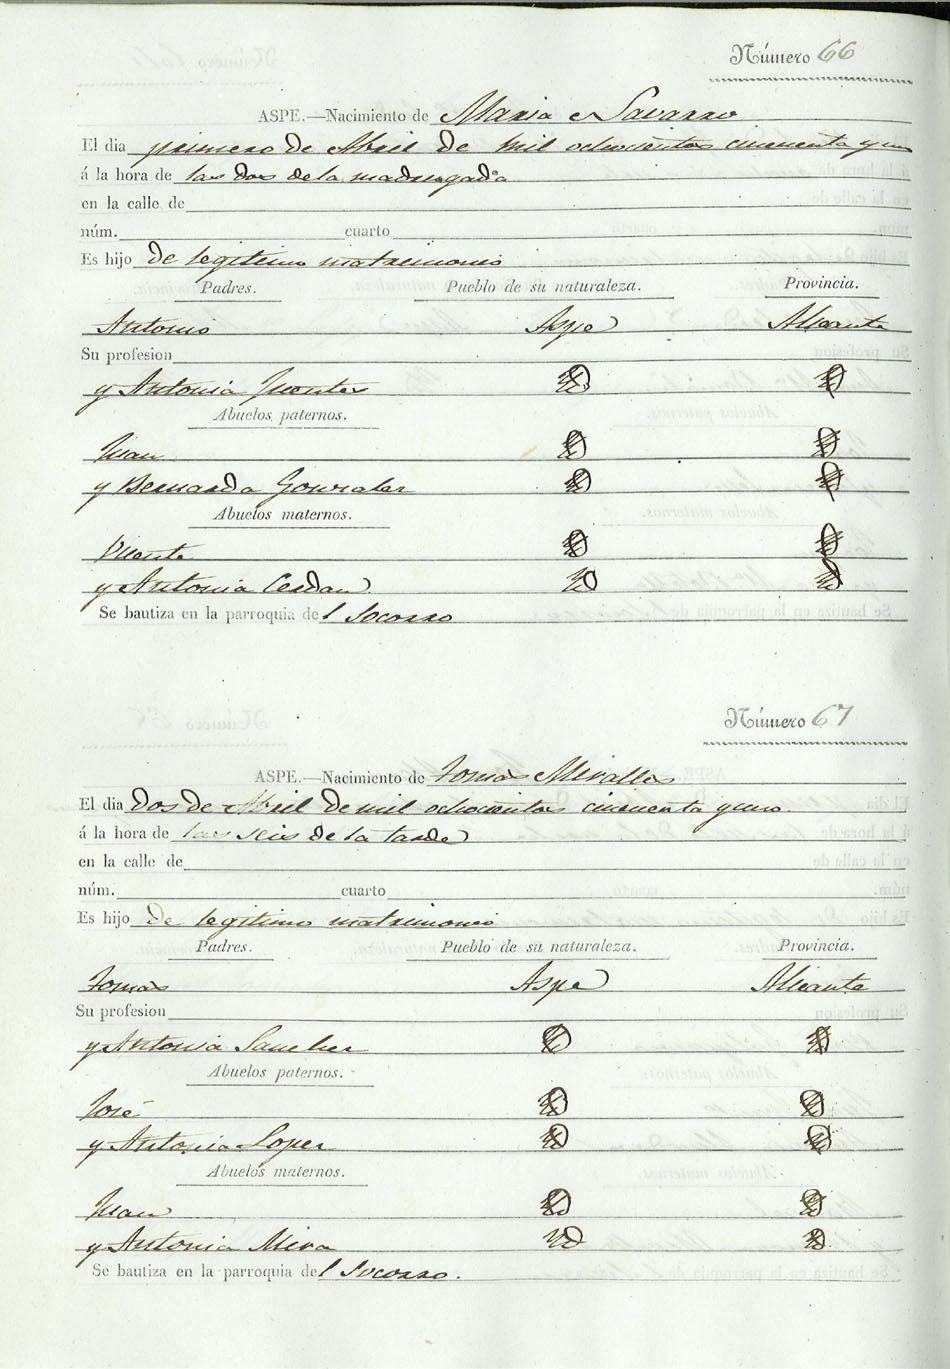 Número 66
ASPE.—Nacimiento de Maria Navarro
El dia primero de Abril de mil ochocientos cincuenta y un
á la hora de las dos de la madrugada
en la calle de
núm. cuarto
Es hijo de legitimo matrimonio
Padres. Pueblo de su naturaleza. Provincia.
Antonio Aspe Alicante
Su profesion
y Antonia Puentes Yd Yd
Abuelos paternos.
Juan Yd Yd
y Bernarda Gonzalez Yd Yd
Abuelos maternos.
Vicente Yd Yd
y Antonia Cerdan Yd Yd
Se bautiza en la parroquia del Socorro
Número 67
ASPE.—Nacimiento de Tomas Miralles
El dia dos de Abril de mil ochocientos cincuenta y uno
á la hora de las seis de la tarde
en la calle de
núm. cuarto
Es hijo de legitimo matrimonio
Padres. Pueblo de su naturaleza. Provincia.
Tomas Aspe Alicante
Su profesion
y Antonia Sanchez Yd Yd
Abuelos paternos.
José Yd Yd
y Antonia Lopez Yd Yd
Abuelos maternos.
Juan Yd Yd
y Antonia Mira Yd Yd
Se bautiza en la parroquia del Socorro.